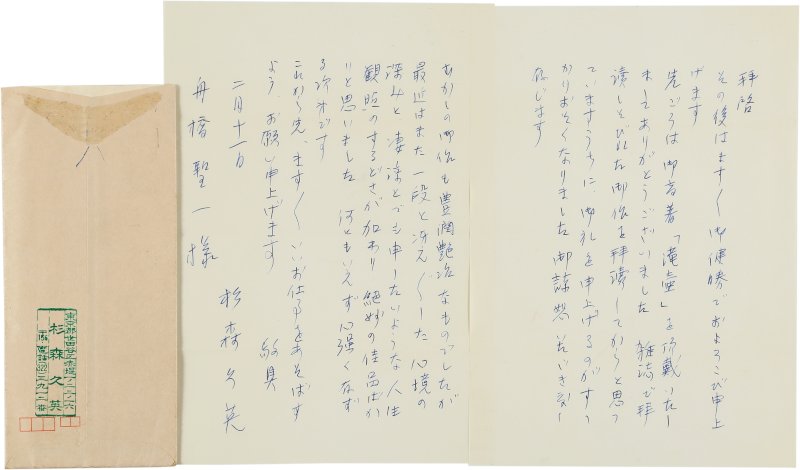 拝啓
その後はます〳〵御健勝でおよろこび申上
げます
先ごろは御高著「滝壷」を頂戴いたし
ましてありがとうございました 雑誌で拝
読しそびれた御作を拝読してからと思っ
ていますうちに、御礼を申上げるのがすっ
かりおそくなりました 御諒恕いただきたく
存じます
むかしの御作も豊潤艶冶なものでしたが
最近はまた一段と冴え〴〵した心境の
深みと凄涼とでも申したいような人生
観照のするどさが加わり 絶妙の佳品ばか
りと思いました 何ともいえず心強く存ず
る次才です
これから先、ます〳〵いいお仕事をあそばす
よう お願い申上げます 敬具
二月十一日
杉森久英
舟橋聖一様
杉森久英